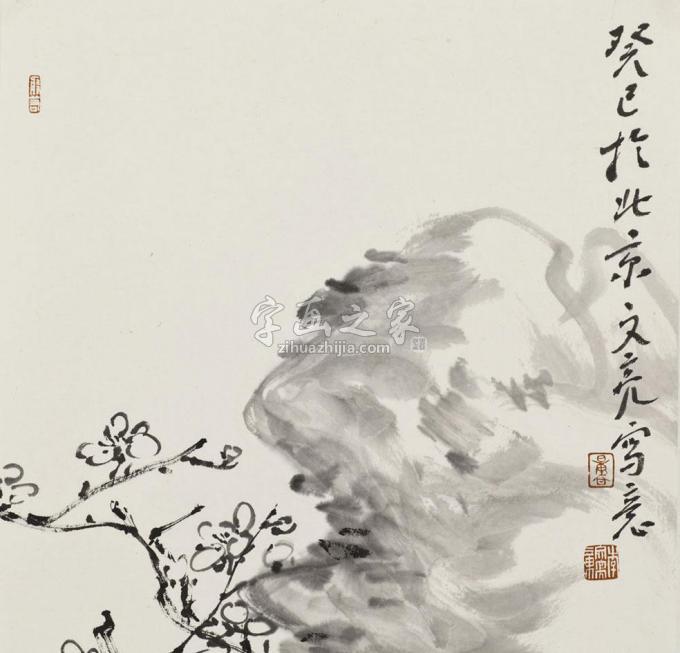 癸巳於北京文亮写意
字画之家
zihuazhijia.com